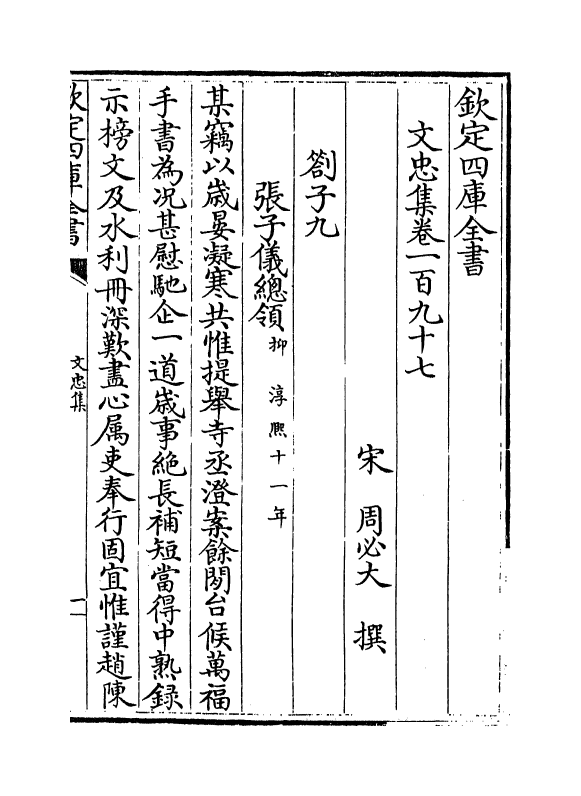 欽定四庫全書
文忠集卷一百九十七
宋 周必大 撰
劄子九
張子儀總領抑 淳熙十一年
某竊以歲晏凝寒共惟提舉寺丞澄案餘閒台候萬福
手書為况甚慰馳企一道歲事絶長補短當得中熟録
示榜文及水利冊深歎盡心属吏奉行固宜惟謹趙陳
欽定四庫全書
文忠集
一